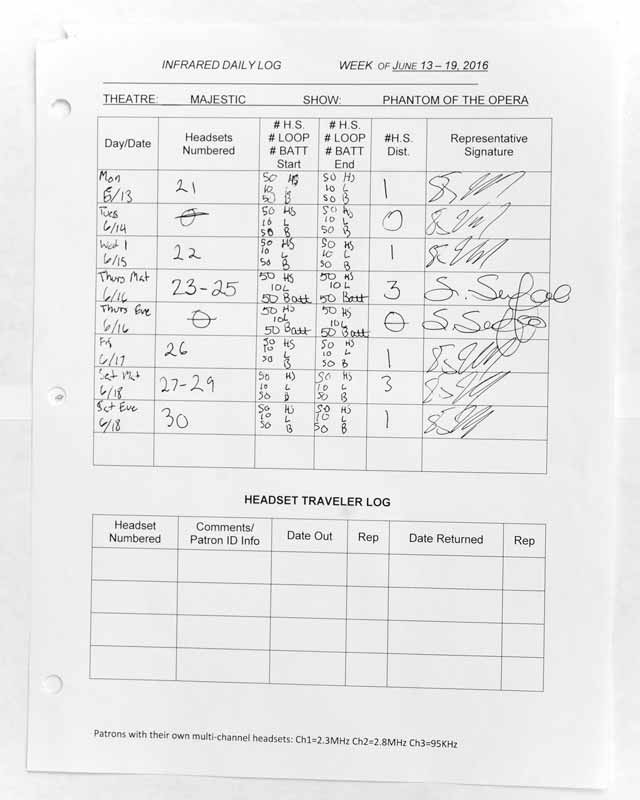 INFRARED DAILY LOG WEEK OF JUNE 13 – 19, 2016
THEATRE: MAJESTIC SHOW: PHANTOM OF THE OPERA
Day/Date Headsets Numbered # H.S. # LOOP # BATT Start # H.S. # LOOP # BATT End #H.S. Dist. Representative Signature
Mon 6/13 21 50 HS 10 L 50 B 50 HS 10 L 50 B 1
Tues 6/14 0 50 HS 10 L 50 B 50 HS 10 L 50 B 0
Wed 1 6/15 22 50 HS 10 L 50 B 50 HS 10 L 50 B 1
Thurs Mat 6/16 23-25 50 HS 10L 50 Batt 50 HS 10L 50 Batt 3
Thurs Eve 6/16 0 50 HS 10L 50 Batt 50 HS 10L 50 Batt 0
Fri 6/17 26 50 HS 10 L 50 B 50 HS 10 L 50 B 1
Sat Mat 6/18 27-29 50 HS 10 L 50 B 50 HS 10 L 50 B 3
Sat Eve 6/18 30 50 HS 10 L 50 B 50 HS 10 L 50 B 1
HEADSET TRAVELER LOG
Headset Numbered Comments/ Patron ID Info Date Out Rep Date Returned Rep
Patrons with their own multi-channel headsets: Ch1=2.3MHz Ch2=2.8MHz Ch3=95KHz